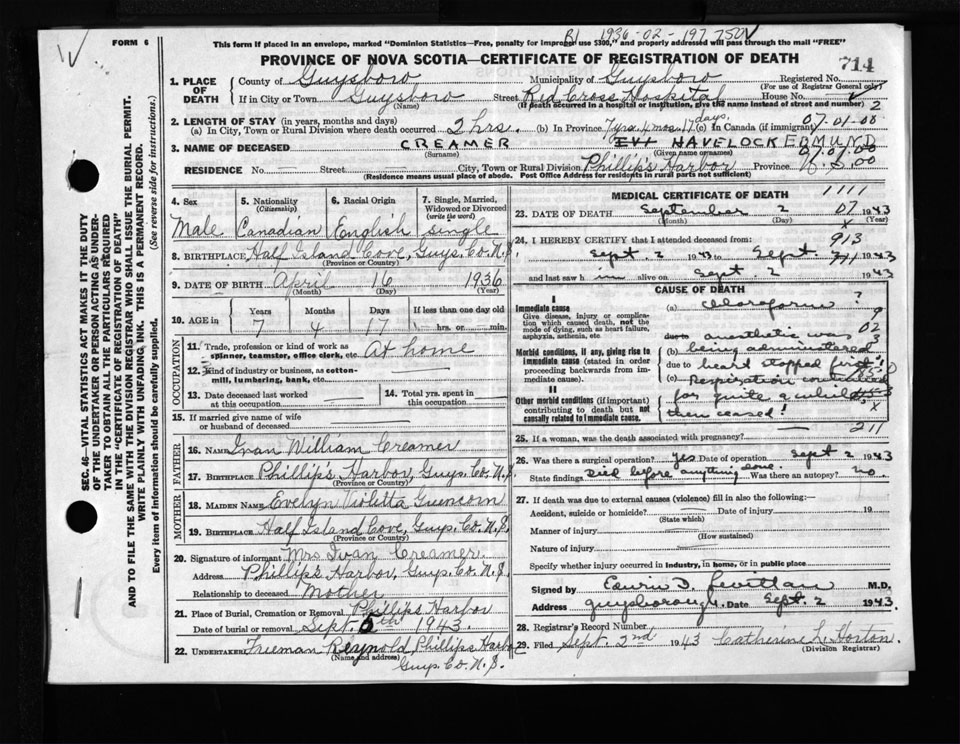 FORM 6
This form if placed in an envelope, marked "Dominion Statistics—Free, penalty for improper use $300," and properly addressed will pass through the mail "FREE"
1936-02-197750
PROVINCE OF NOVA SCOTIA—CERTIFICATE OF REGISTRATION OF DEATH
714
1. PLACE OF DEATH
County of Guysboro Municipality of Guysboro Registered No.
(For use of Registrar General only)
If in City or Town Guysboro Street Red Cross Hospital House No.
(Name) (If death occurred in a hospital or institution, give the name instead of street and number) 2
2. LENGTH OF STAY (in years, months and days)
(a) In City, Town or Rural Division where death occurred 2 hrs. (b) In Province 7 yrs. 4 mos. 17 days. (c) In Canada (if immigrant) 07.01.00
3. NAME OF DECEASED CREAMER HAVELOCK EDMUND
(Surname) (Given names) 07.01.00
RESIDENCE No. Street City, Town or Rural Division Phillip's Harbor Province
(Residence means usual place of abode. Post Office Address for residents in rural parts not sufficient)
4. Sex Male
5. Nationality (Citizenship) Canadian
6. Racial Origin English
7. Single, Married, Widowed or Divorced (write the word) Single
8. BIRTHPLACE Half Island Cove, Guys. Co. N.S.
(Province or Country)
9. DATE OF BIRTH April 16 1936
(Month) (Day) (Year)
10. AGE in Years Months Days If less than one day old
7 4 17 hrs. or min.
OCCUPATION
11. Trade, profession or kind of work as spinner, teamster, office clerk, etc. At home
12. Kind of industry or business, as cotton-mill, lumbering, bank, etc.
13. Date deceased last worked at this occupation
14. Total yrs. spent in this occupation
15. If married give name of wife or husband of deceased
FATHER
16. Name Ivan William Creamer
17. BIRTHPLACE Phillip's Harbor, Guys. Co. N.S.
(Province or Country)
MOTHER
18. MAIDEN NAME Evelyn Violetta
19. BIRTHPLACE Half Island Cove, Guys. Co. N.S.
(Province or Country)
20. Signature of informant Mrs. Ivan Creamer.
Address Phillip's Harbor, Guys. Co. N.S.
Relationship to deceased Mother
21. Place of Burial, Cremation or Removal Phillips Harbor
Date of burial or removal Sept. 5th 1943.
22. UNDERTAKER Freeman Reynold, Phillips Harbor
(Name and address) Guys. Co. N.S.
MEDICAL CERTIFICATE OF DEATH 1111
23. DATE OF DEATH September 2 07 1943
(Month) (Day)
24. I HEREBY CERTIFY that I attended deceased from: 913
Sept. 2 1943 to Sept. 1943
and last saw h im alive on Sept 2 1943
CAUSE OF DEATH
I
Immediate cause
Give disease, injury or complication which caused death, not the mode of dying, such as heart failure, asphyxia, asthenia, etc.
(a) Chloroform ?
anesthetic was
(b) being administered
Morbid conditions, if any, giving rise to immediate cause (stated in order proceeding backwards from immediate cause).
due to heart stopped first!
(c) Respiration continued
II
Other morbid conditions (if important) contributing to death but not causally related to immediate cause.
for quite a while
then ceased!
211
25. If a woman, was the death associated with pregnancy?
26. Was there a surgical operation? Yes Date of operation Sept 2 1943
State findings Died before anything done. Was there an autopsy? no.
27. If death was due to external causes (violence) fill in also the following:—
Accident, suicide or homicide? Date of injury 19
(State which)
Manner of injury
(How sustained)
Nature of injury
Specify whether injury occurred in industry, in home, or in public place
Signed by M.D.
Address Guysborough. Date Sept. 2 1943.
28. Registrar's Record Number
29. Filed Sept. 2nd 1943 Catherine L. Horton.
(Division Registrar)
SEC. 46—VITAL STATISTICS ACT MAKES IT THE DUTY
OF THE UNDERTAKER OR PERSON ACTING AS UNDER-
TAKER TO OBTAIN ALL THE PARTICULARS REQUIRED
IN THE "CERTIFICATE OF REGISTRATION OF DEATH"
AND TO FILE THE SAME WITH THE DIVISION REGISTRAR WHO SHALL ISSUE THE BURIAL PERMIT.
WRITE PLAINLY WITH UNFADING INK. THIS IS A PERMANENT RECORD.
Every item of information should be carefully supplied. (See reverse side for instructions.)